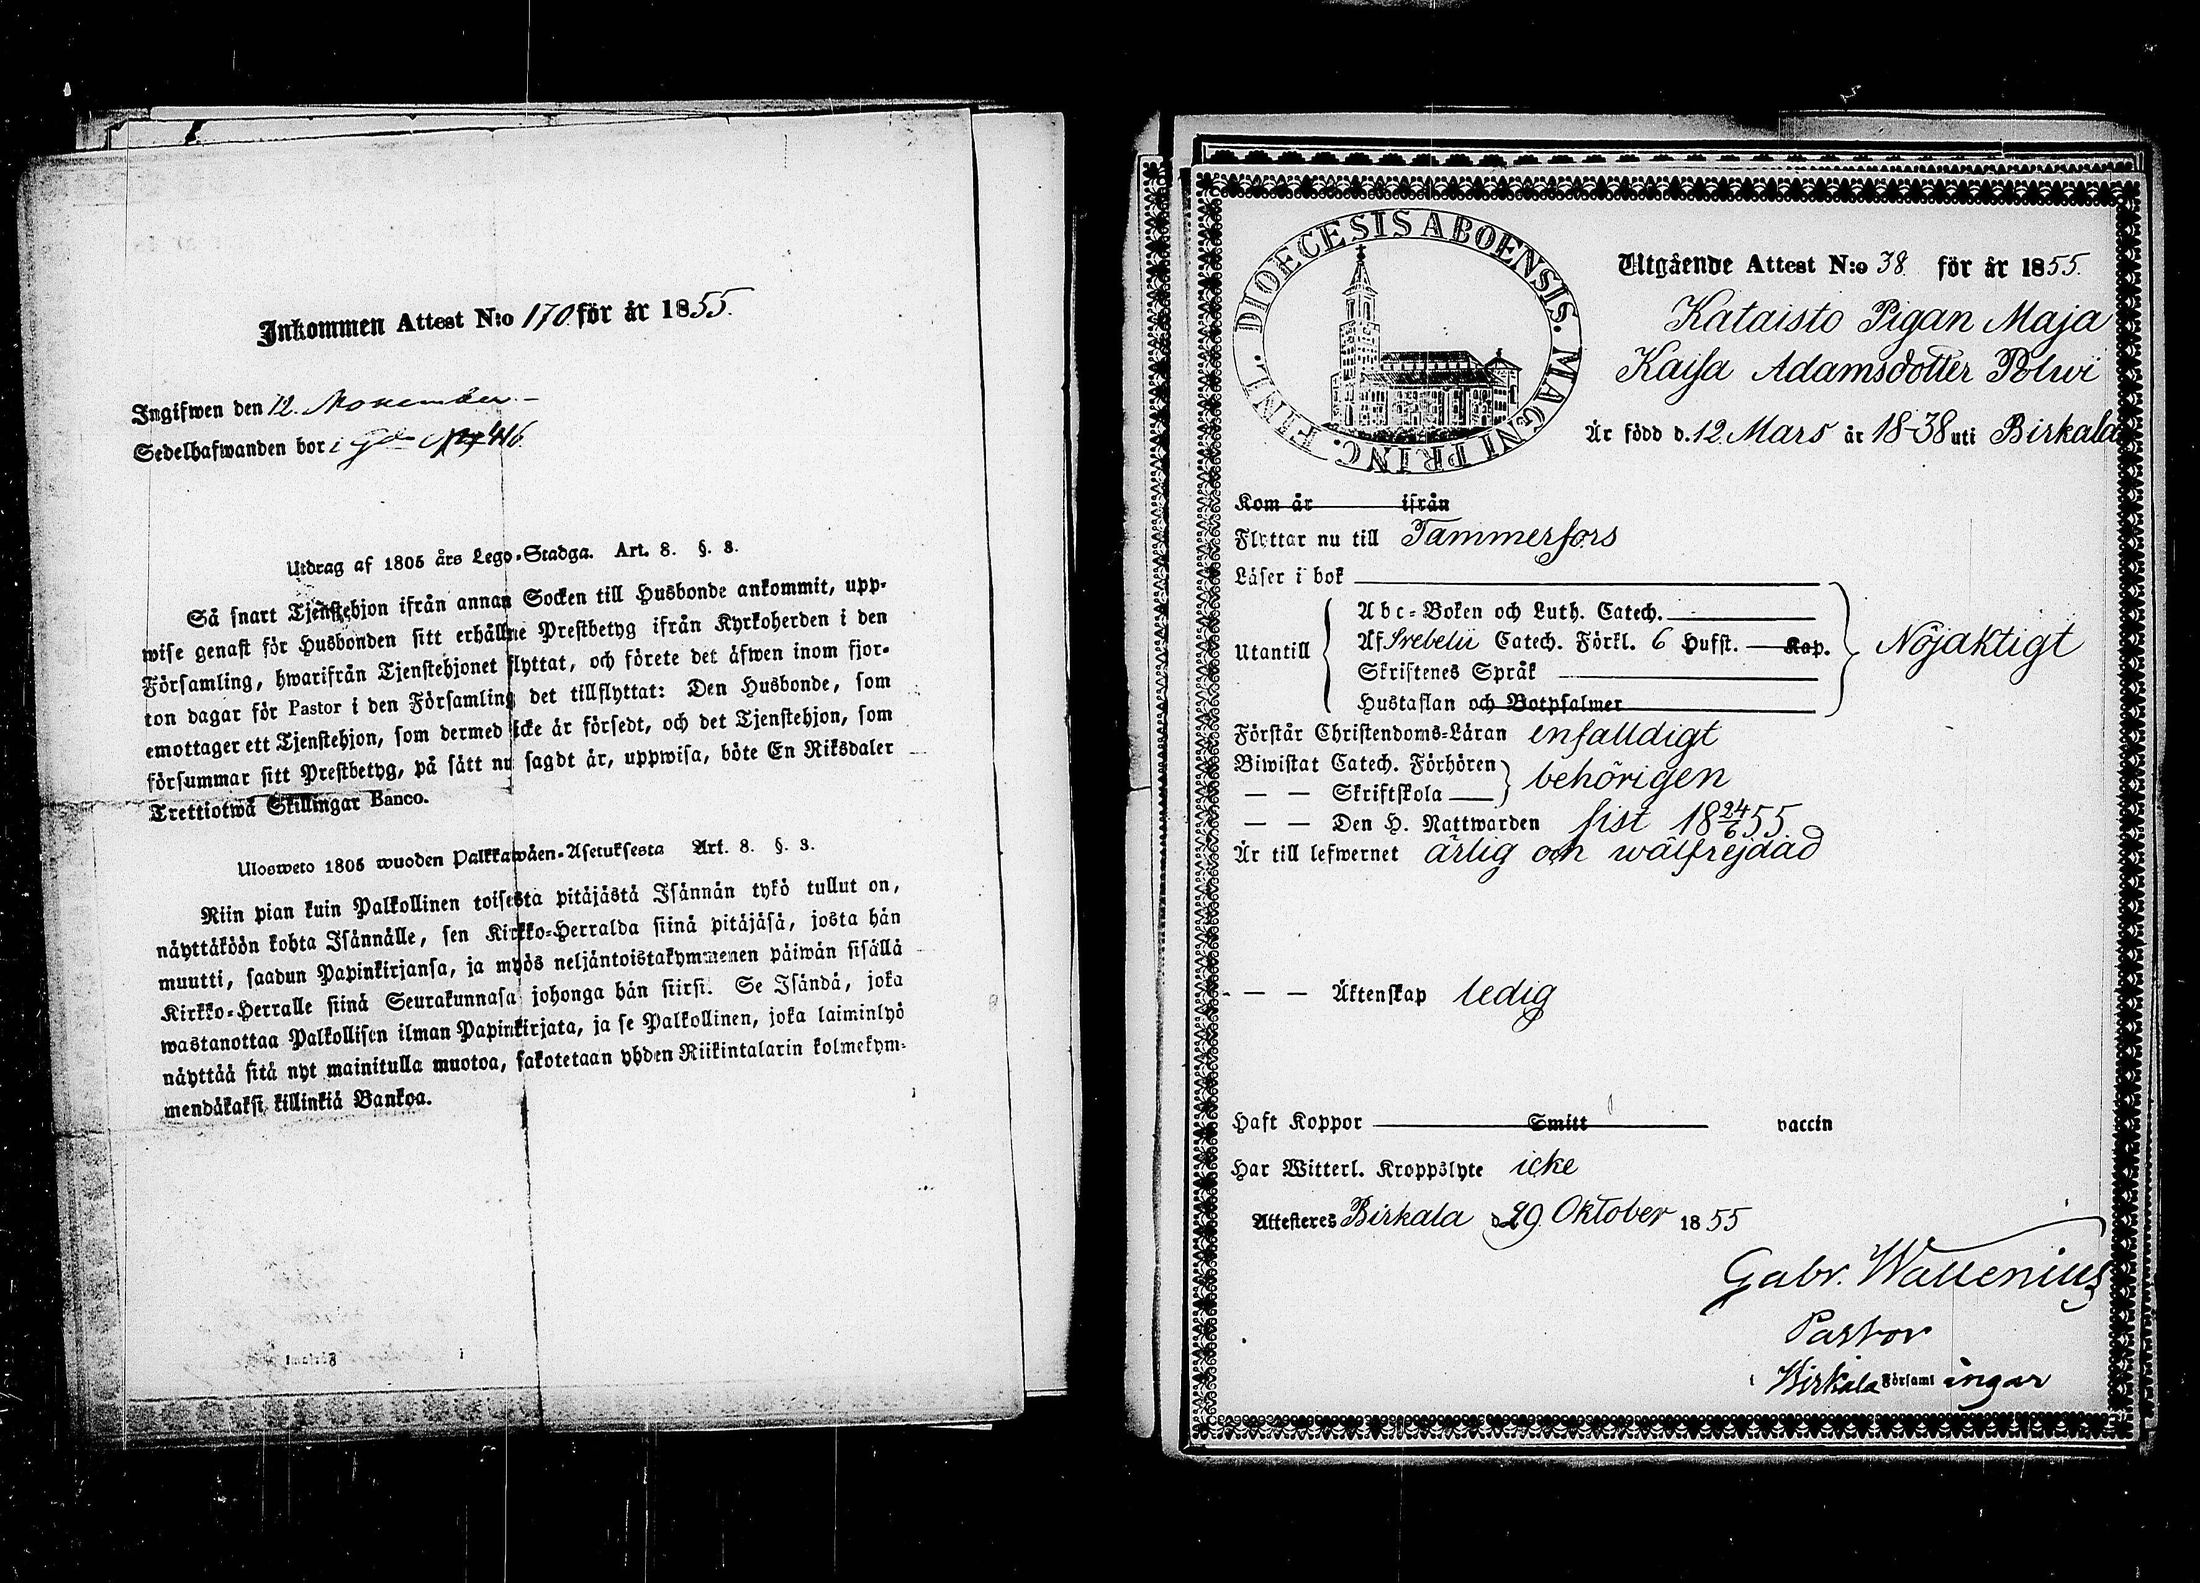 Inkommen Attest N:o 170 för år 1855.
Ingifwen den 12. November. –
Sedelhafwanden bor i Gd N:o 46
Utdrag af 1805 års Lego-Stadga. Art. 8. §. 3.
Så snart Tjenstehjon ifrån annan Socken till Husbonde ankommit, upp-
wise genast för Husbonden sitt erhållne Prestbetyg ifrån Kyrkoherden i den
Församling, hwarifrån Tjenstehjonet flyttat, och förete det äfwen inom fjor-
ton dagar för Pastor i den Församling det tillflyttat: Den Husbonde, som
emottager ett Tjenstehjon, som dermed icke är försedt, och det Tjenstehjon, som
försummar sitt Prestbetyg, på sätt nu sagdt är, uppwisa, böte En Riksdaler
Trettiotwå Skillingar Banco.
Ulosweto 1805 wuoden Palkkawäen-Asetuksesta Art. 8. §. 3.
Niin pian kuin Palkollinen toisesta pitäjästä Isännän tykö tullut on,
näyttäköön kohta Isännälle, sen Kirkko-Herralda siinä pitäjäsä, josta hän
muutti, saadun Papinkirjansa, ja myös neljäntoistakymmenen päiwän sisällä
Kirkko-Herralle siinä Seurakunnasa johonga hän siirsi. Se Isändä, joka
wastanottaa Palkollisen ilman Papinkirjata, ja se Palkollinen, joka laiminlyö
näyttää sitä nyt mainitulla muotoa, sakotetaan yhden Riikintalarin kolmekym-
mendäkaksi killinkiä Bankoa.
DIOECESIS ABOENSIS. MAGNI PRINC. FINL.
Utgående Attest N:o 38 för år 1855.
Kataisto Pigan Maja
Kajsa Adamsdotter Polwi
Är född d. 12 Mars år 1838 uti Birkala
Kom år ifrån
Flyttar nu till Tammerfors
Läser i bok
Abc-Boken och Luth. Catech.
Utantill Af Svebelii Catech. Förkl. 6 Hufst. Kap. Nöjaktigt
Skriftenes Språk
Hustaflan och Botpsalmer
Förstår Christendoms-Läran enfalldigt
Biwistat Catech. Förhören behörigen
— — Skriftskola
— — Den H. Nattwarden sist 18 24/6 55
Är till lefwernet ärlig och wälfrejdad
— — Äktenskap ledig
Haft Koppor Smitt vaccin
Har Witterl. Kroppslyte icke
Attesteres Birkala d 29 Oktober 1855
Gabr. Wallenius
Pastor
i Birkala Församl ingar